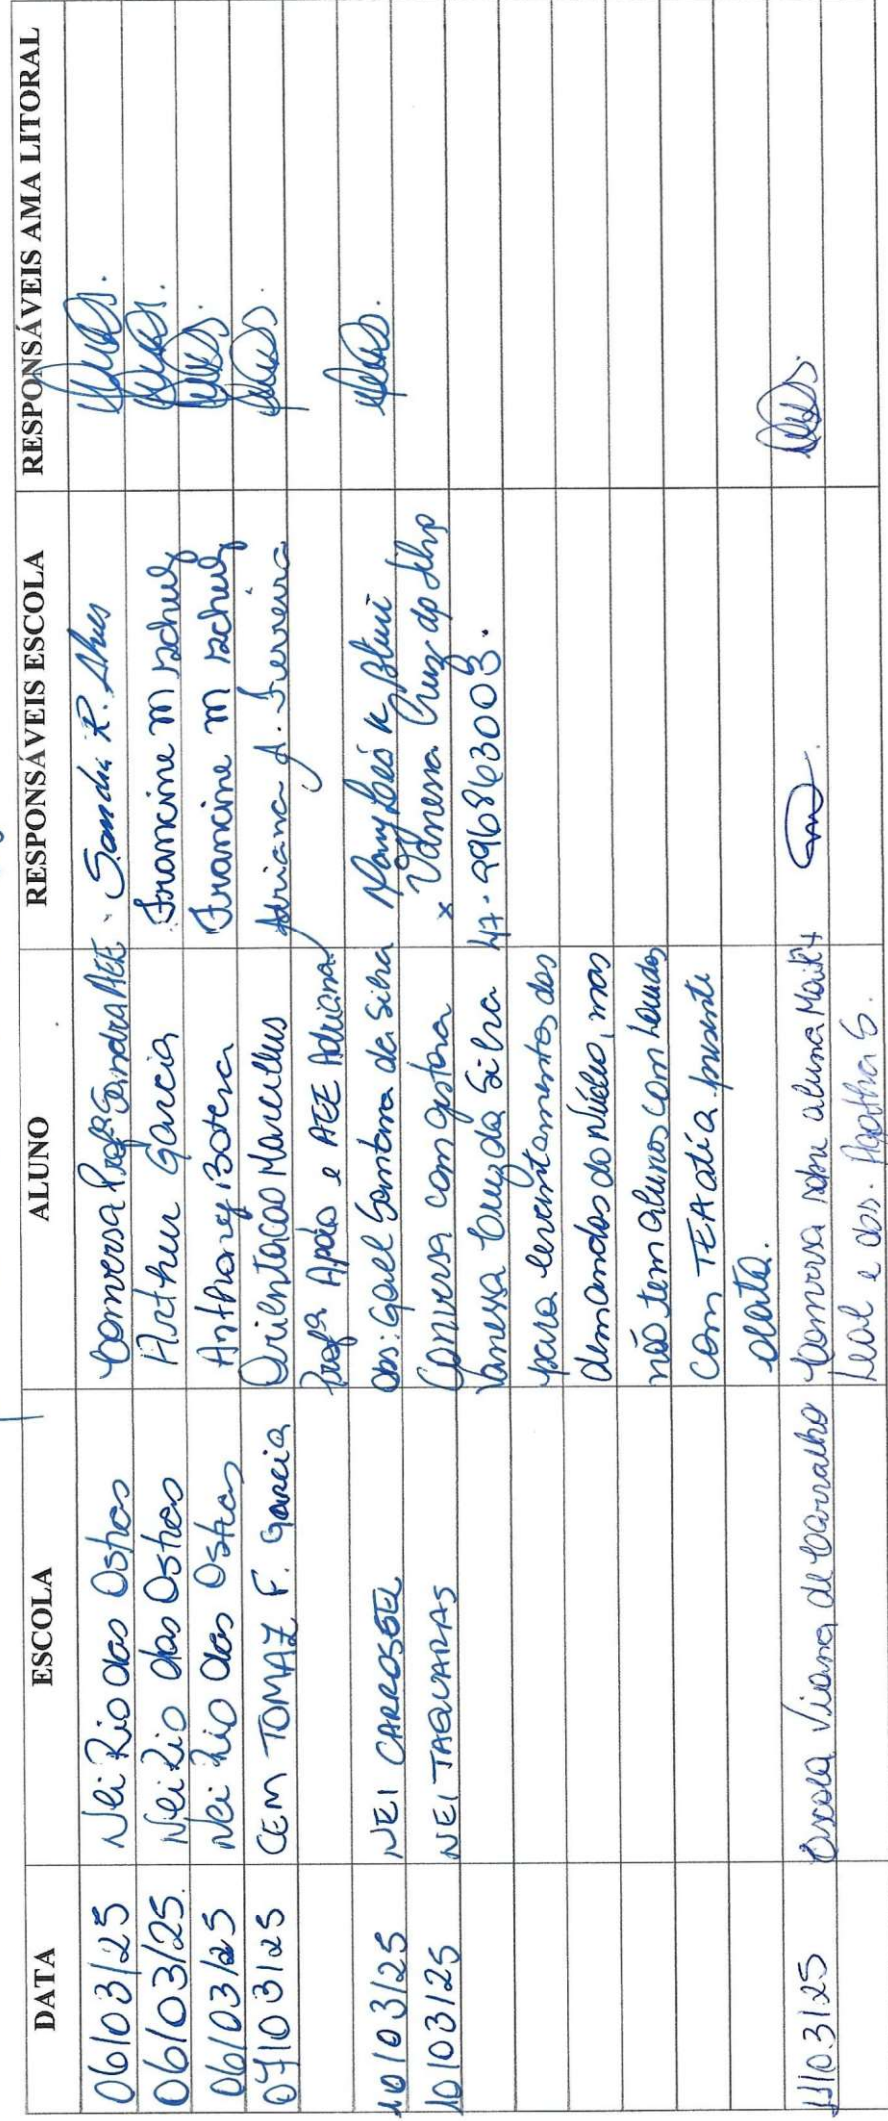 DATA ESCOLA ALUNO RESPONSÁVEIS ESCOLA RESPONSÁVEIS AMA LITORAL
06/03/25 Nei Rio das Ostras Conversa Profª Sandra AEE - Sandra R. Alves
06/03/25. Nei Rio das Ostras Arthur Garcia Francine M
06/03/25 Nei Rio das Ostras Anthony Francine M
07/03/25 CEM TOMAZ F. Garcia Orientação Marcellus Adriana A. Ferreira
Profª Apoio e AEE Adriana
10/03/25 NEI CARROSSEL obs: Gael Santana da Silva
10/03/25 NEI TAQUARAS Conversa com gestora x Vanessa Cruz da Silva
Vanessa Cruz da Silva 47-996863003.
para levantamentos das
demandas do Núcleo, mas
não tem alunos com laudos
com TEA até a presente
data.
11/03/25 Escola Viana de Carvalho Conversa sobre aluna
Leal e obs. Agatha S.